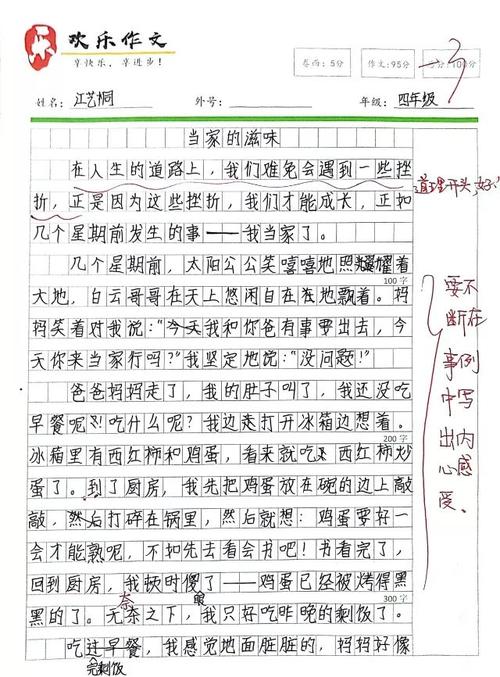 欢乐作文
享快乐，享进步！
卷面：5分
作文：95分
姓名：江艺桐
外号：
年级：四年级
当家的滋味
在人生的道路上，我们难免会遇到一些挫
折，正是因为这些挫折，我们才能成长，正如
几个星期前发生的事——我当家了。
道理开头，好！
几个星期前，太阳公公笑嘻嘻地照耀着
100字
大地，白云哥哥在天上悠闲自在地飘着。妈
妈笑着对我说："今天我和你爸有事要出去，今
天你来当家行吗？"我坚定地说："没问题！"
爸爸妈妈走了，我的肚子叫了，我还没吃
早餐呢！吃什么呢？我边走打开冰箱边想着。
200字
冰箱里有西红柿和鸡蛋，看来就吃西红柿炒
蛋了。到了厨房，我先把鸡蛋放在碗的边上敲
敲，然后打碎在锅里，然后就想：鸡蛋要好一
会才能熟呢，不如先去看会书吧！书看完了，
回到厨房，我顿时傻了——鸡蛋已经被烤得黑
300字
黑的了。无奈之下，我只好吃昨晚的剩饭了。
奈
吃过早餐，我感觉地面脏脏的，妈妈好像
完剩饭
要不断在事例中写出内心感受。